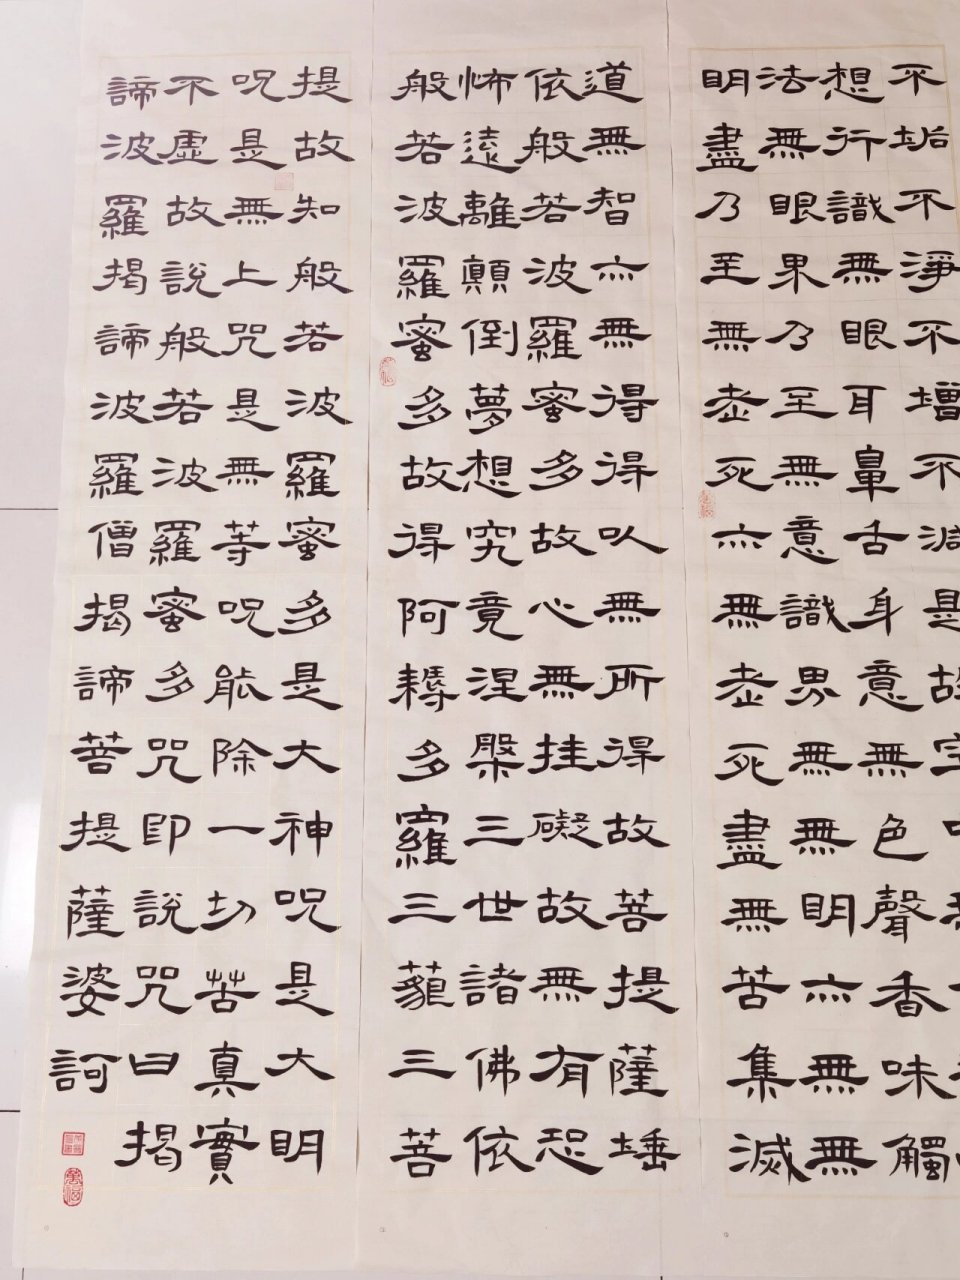 不垢不淨不增不減是故空
想行識無眼耳鼻舌身意無色聲香味觸
法無眼界乃至無意識界無無明亦無無
明盡乃至無老死亦無老死盡無苦集滅
道無智亦無得得以無所得故菩提薩埵
依般若波羅蜜多故心無挂礙故無有恐
怖遠離顛倒夢想究竟涅槃三世諸佛依
般若波羅蜜多故得阿耨多羅三藐三菩
提故知般若波羅蜜多是大神呪是大明
呪是無上咒是無等呪能除一切苦真實
不虛故說般若波羅蜜多咒即說咒曰揭
諦波羅揭諦波羅僧揭諦菩提薩婆訶